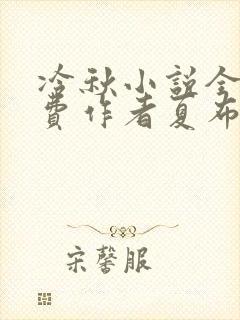 冷秋小説全
費作者夏布
宋馨服